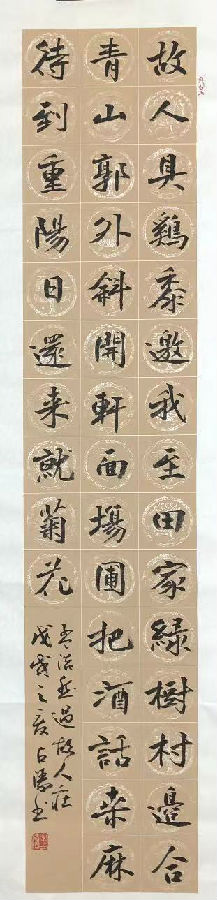 故人具鷄黍邀我至田家綠樹村邊合
青山郭外斜開軒面場圃把酒話桒麻
待到重陽日還来就菊花
孟浩然過故人莊
戊戌之夏占勝書